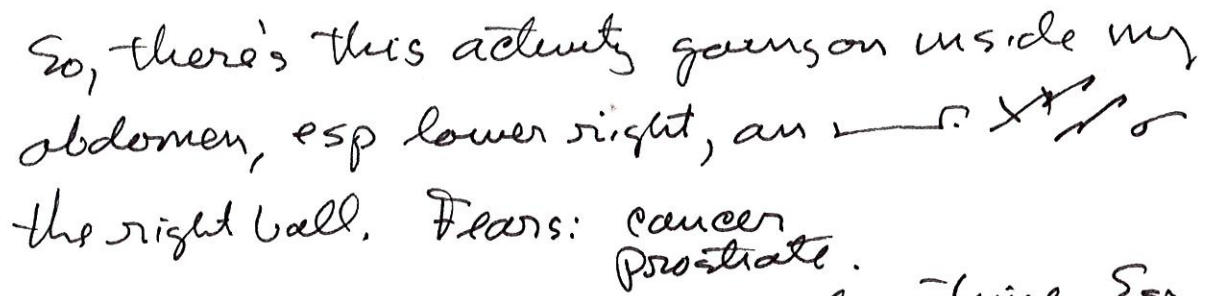 So, there's this activity going on inside my
abdomen, esp lower right, an
the right ball. Fears: cancer
prostrate.